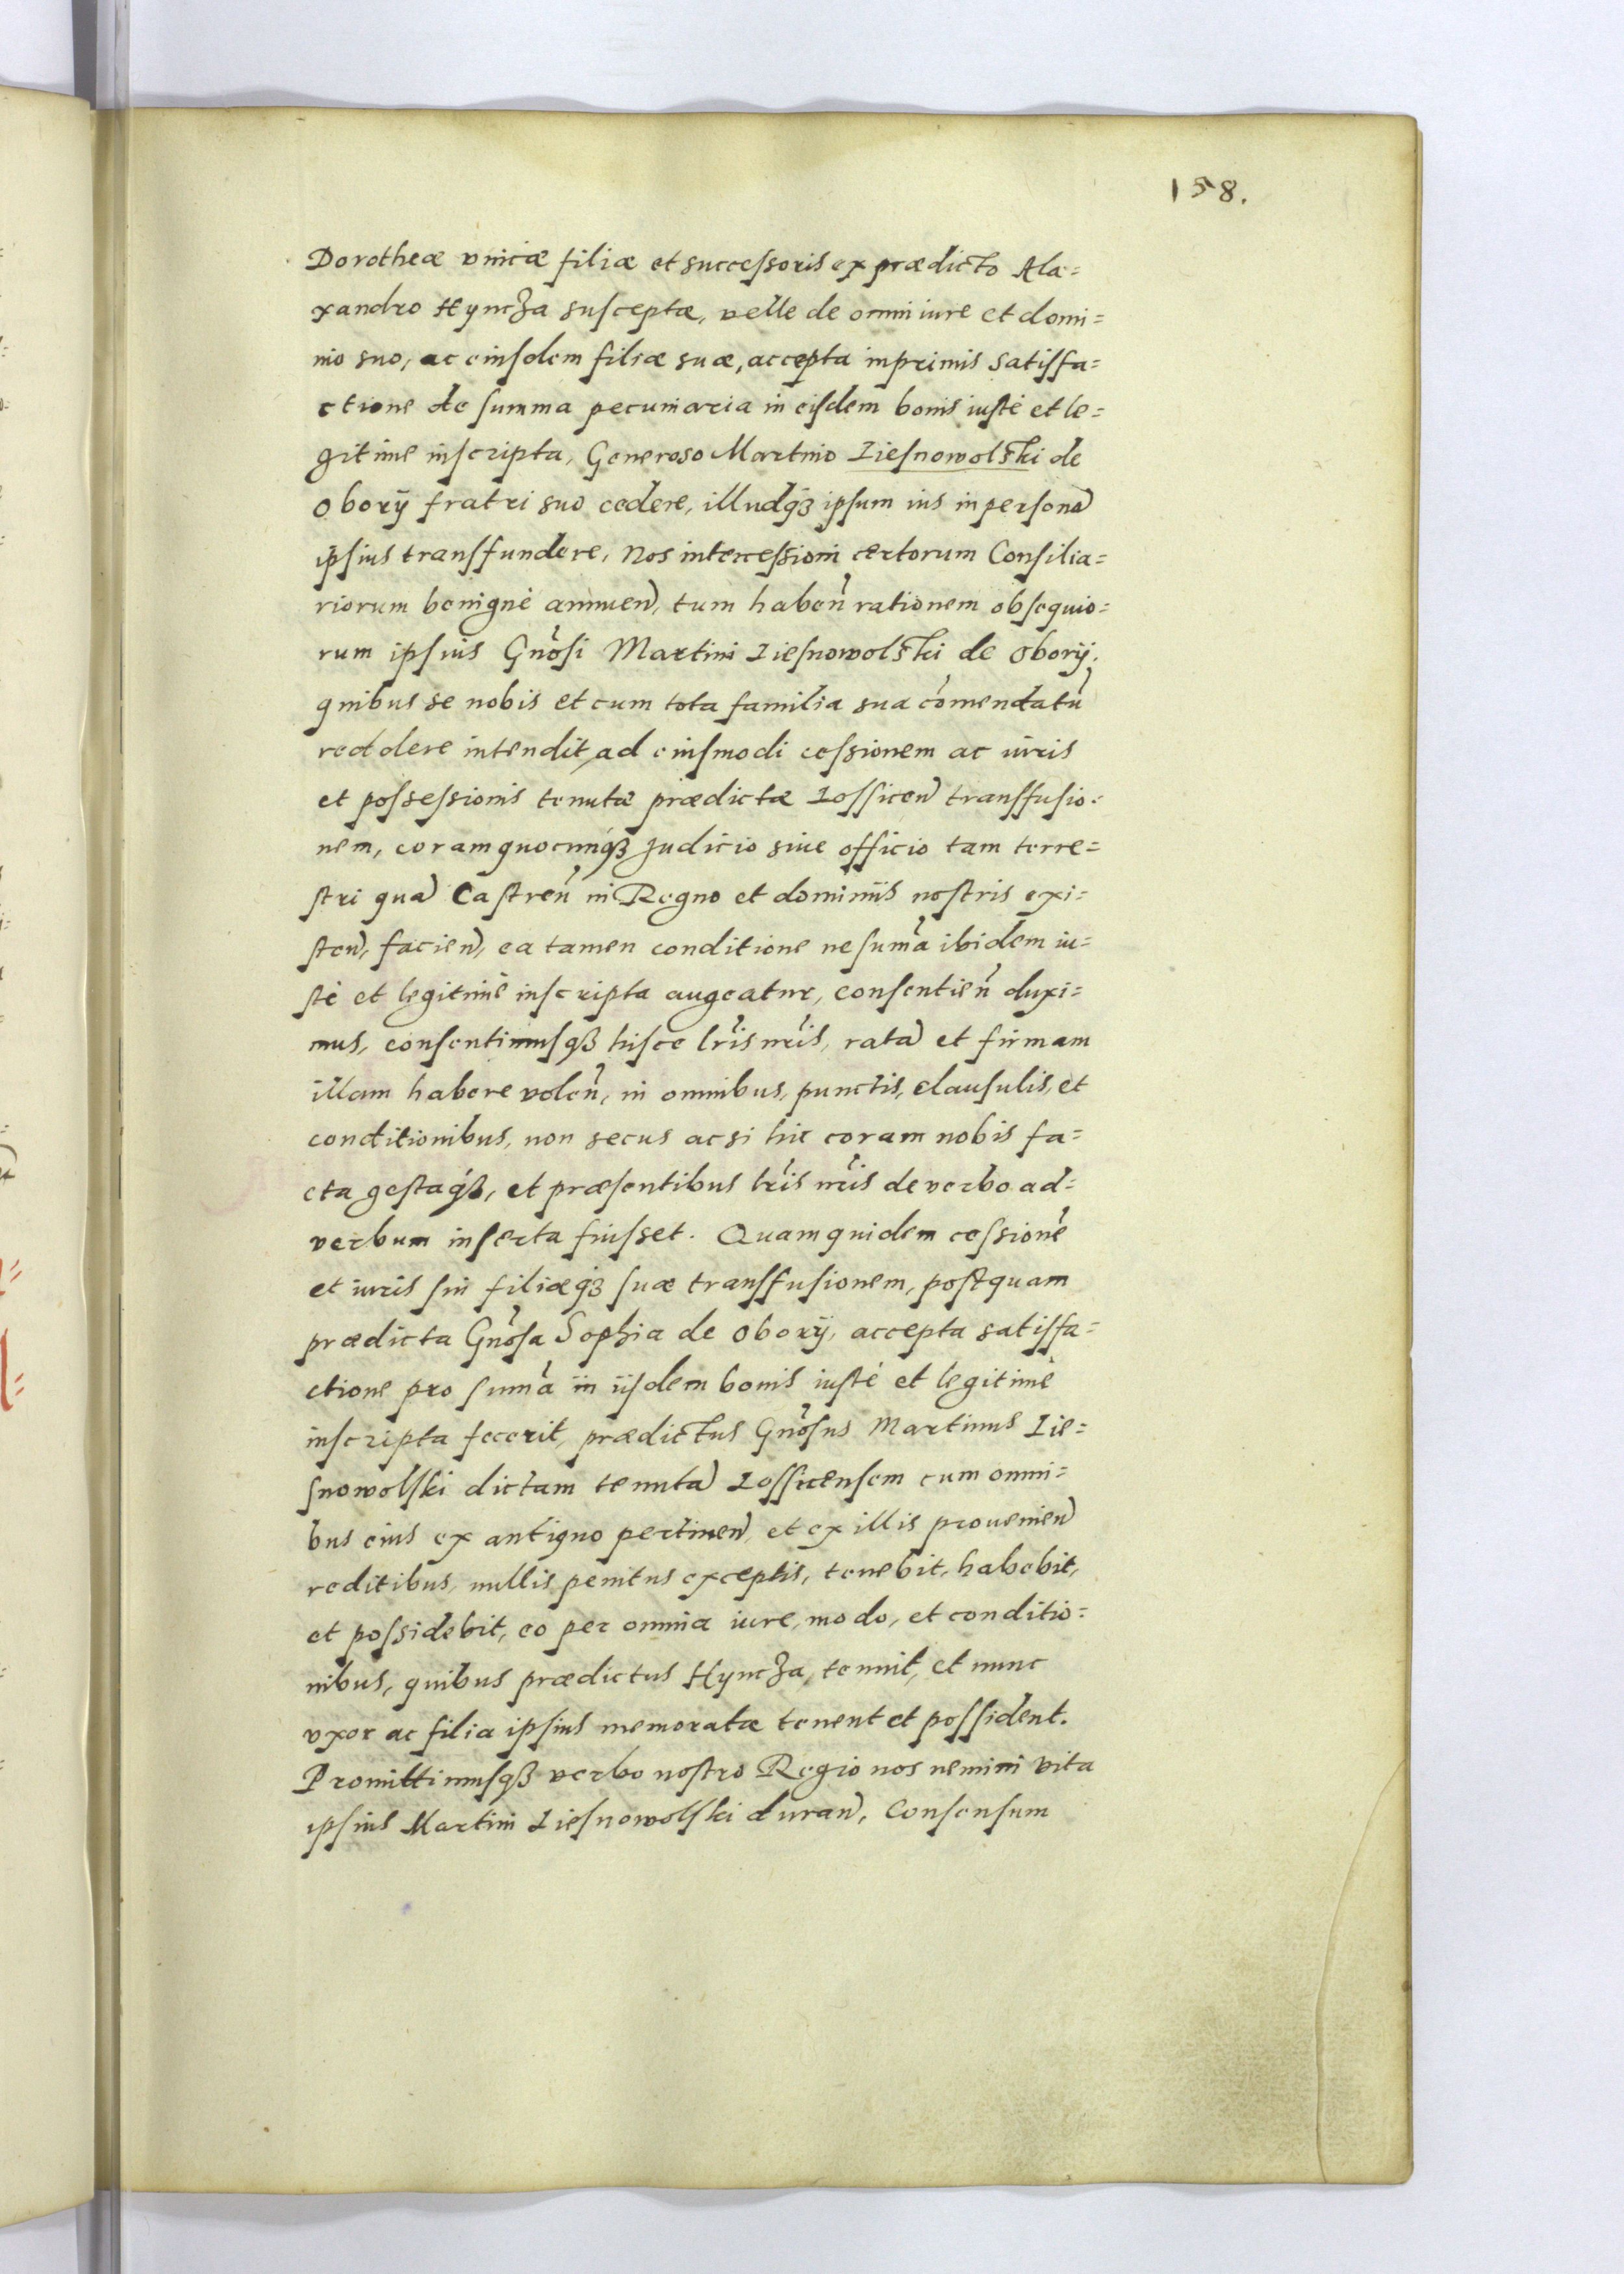 158.
Dorotheæ vnicæ filiæ et successoris ex prædicto Ale=
xandro Hyncza susceptæ, velle de omni iure et domi=
nio suo, ac eiusdem filiæ suæ, accepta inprimis satisfa=
ctione de summa pecuniaria in eisdem bonis iustè et le=
gitime inscripta, Generoso Martino Liesnowolski de
Oborÿ fratri suo cedere, illudqȝ ipsum ius in personã
ipsius transfundere, Nos intercessioni certorum Consilia=
riorum benignè annuen̄, tum haben̄ rationem obsequio=
rum ipsius Gn̄osi Martini Liesnowolski de Oborÿ,
quibus se nobis et cum tota familia sua com̄endatũ
reddere intendit, ad eiusmodi cessionem ac iuris
et possessionis tenutæ prædictæ Lossicen̄ transfusio=
nem, coram quocunqȝ Judicio siue officio tam terre=
stri quã Castren̄ in Regno et dominiis nostris exi=
sten̄, facien̄, ea tamen conditione ne sum̄a ibidem iu=
stè et legitimè inscripta augeatur, consentien̄ duxi=
mus, consentimusqȝ hisce lr̄is nr̄is, ratã et firmam
illam habere volen̄, in omnibus, punctis, clausulis, et
conditionibus, non secus ac si hic coram nobis fa=
cta gestaqȝ, et præsentibus lr̄is nr̄is de verbo ad=
verbum inserta fuisset. Quam quidem cessionẽ
et iuris sui filiæqȝ suæ transfusionem, postquam
prædicta Gn̄osa Sophia de Oborÿ, accepta satisfa=
ctione pro sum̄a in iisdem bonis iustè et legitimè
inscripta fecerit, prædictus Gn̄osus Martinus Lie=
snowolski dictam tenutã Lossicensem cum omni=
bus eius ex antiquo pertinen̄, et ex illis prouenien̄
reditibus, nullis penitus exceptis, tenebit, habebit,
et possidebit, eo per omnia iure, modo, et conditio=
nibus, quibus prædictus Hyncza, tenuit, et nunc
vxor ac filia ipsius memoratæ tenent et possident.
Promittimusqȝ verbo nostro Regio nos nemini vita
ipsius Martini Liesnowolski duran̄, Consensum